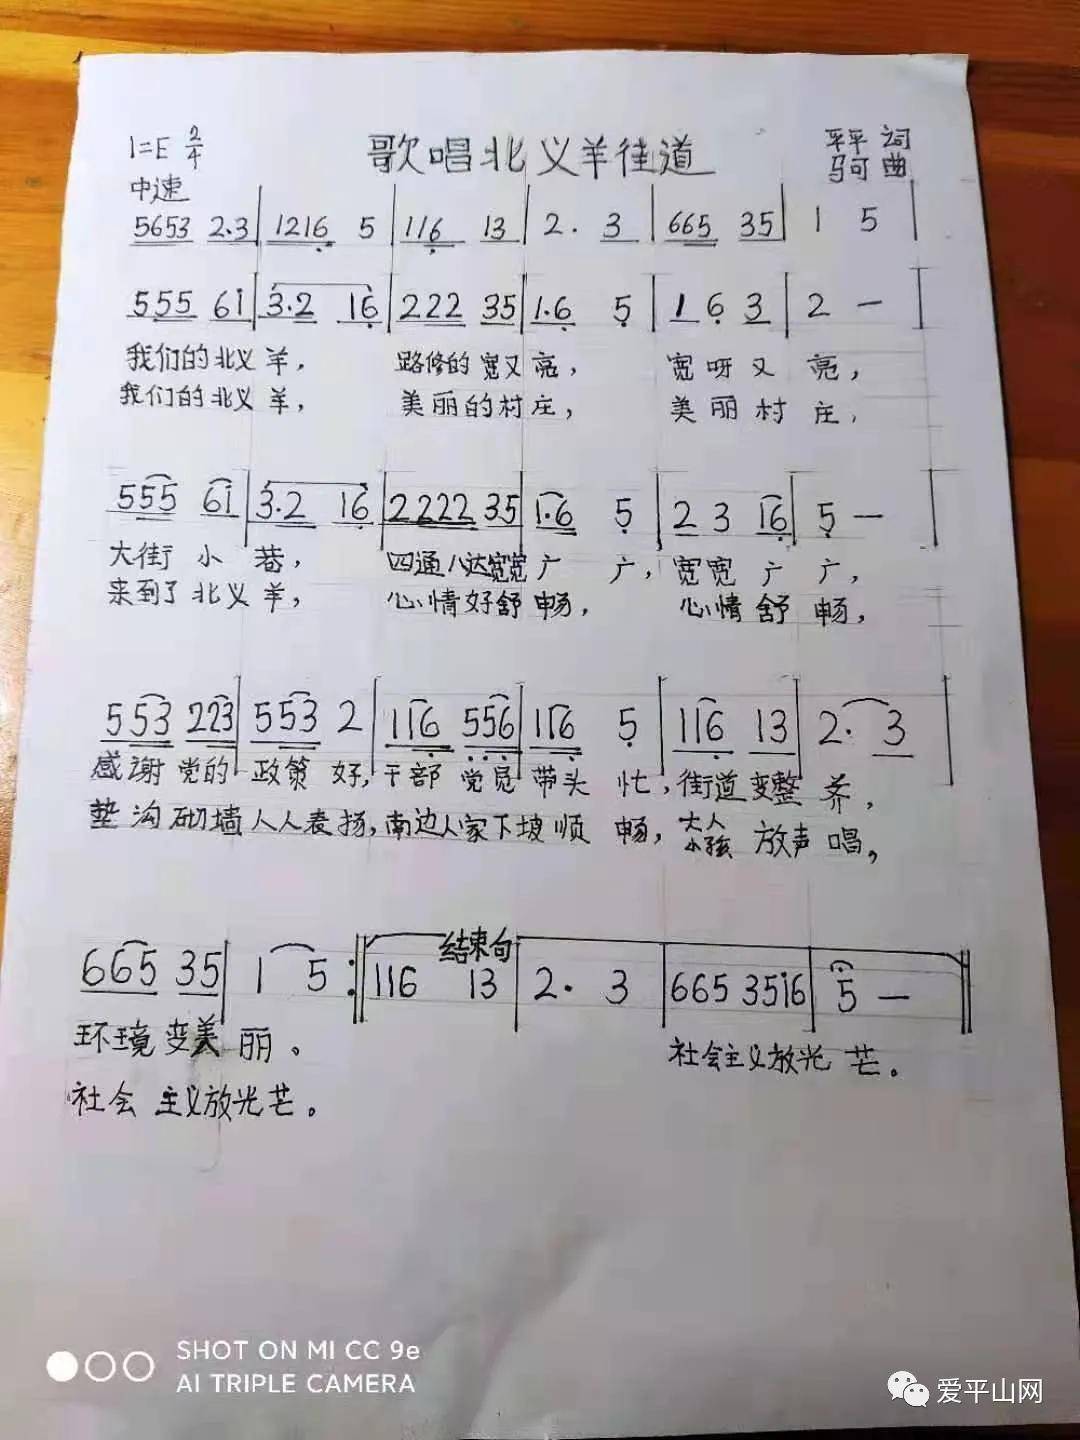 1=E 2/4
歌唱北义羊街道
平平 词
马可 曲
中速
5653 2.3 | 1216 5 | 116 13 | 2. 3 | 665 35 | 1 5 |
555 61 | 3.2 16 | 222 35 | 1.6 5 | 1 6 3 | 2 — |
我们的北义羊， 路修的宽又亮， 宽呀又亮，
我们的北义羊， 美丽的村庄， 美丽村庄，
555 61 | 3.2 16 | 2222 35 | 1.6 5 | 2 3 16 | 5 — |
大街小巷， 四通八达宽宽广广， 宽宽广广，
来到了北义羊， 心情好舒畅， 心情舒畅，
553 223 | 553 2 | 116 556 | 116 5 | 116 13 | 2. 3 |
感谢党的政策好，干部党员带头忙，街道变整齐，
垫沟砌墙人人表扬，南边人家下坡顺畅，大人小孩放声唱，
结束句
665 35 | 1 5 :‖ 116 13 | 2. 3 | 665 3516 | 5 — ‖
环境变美丽。 社会主义放光芒。
社会主义放光芒。
SHOT ON MI CC 9e
AI TRIPLE CAMERA
爱平山网